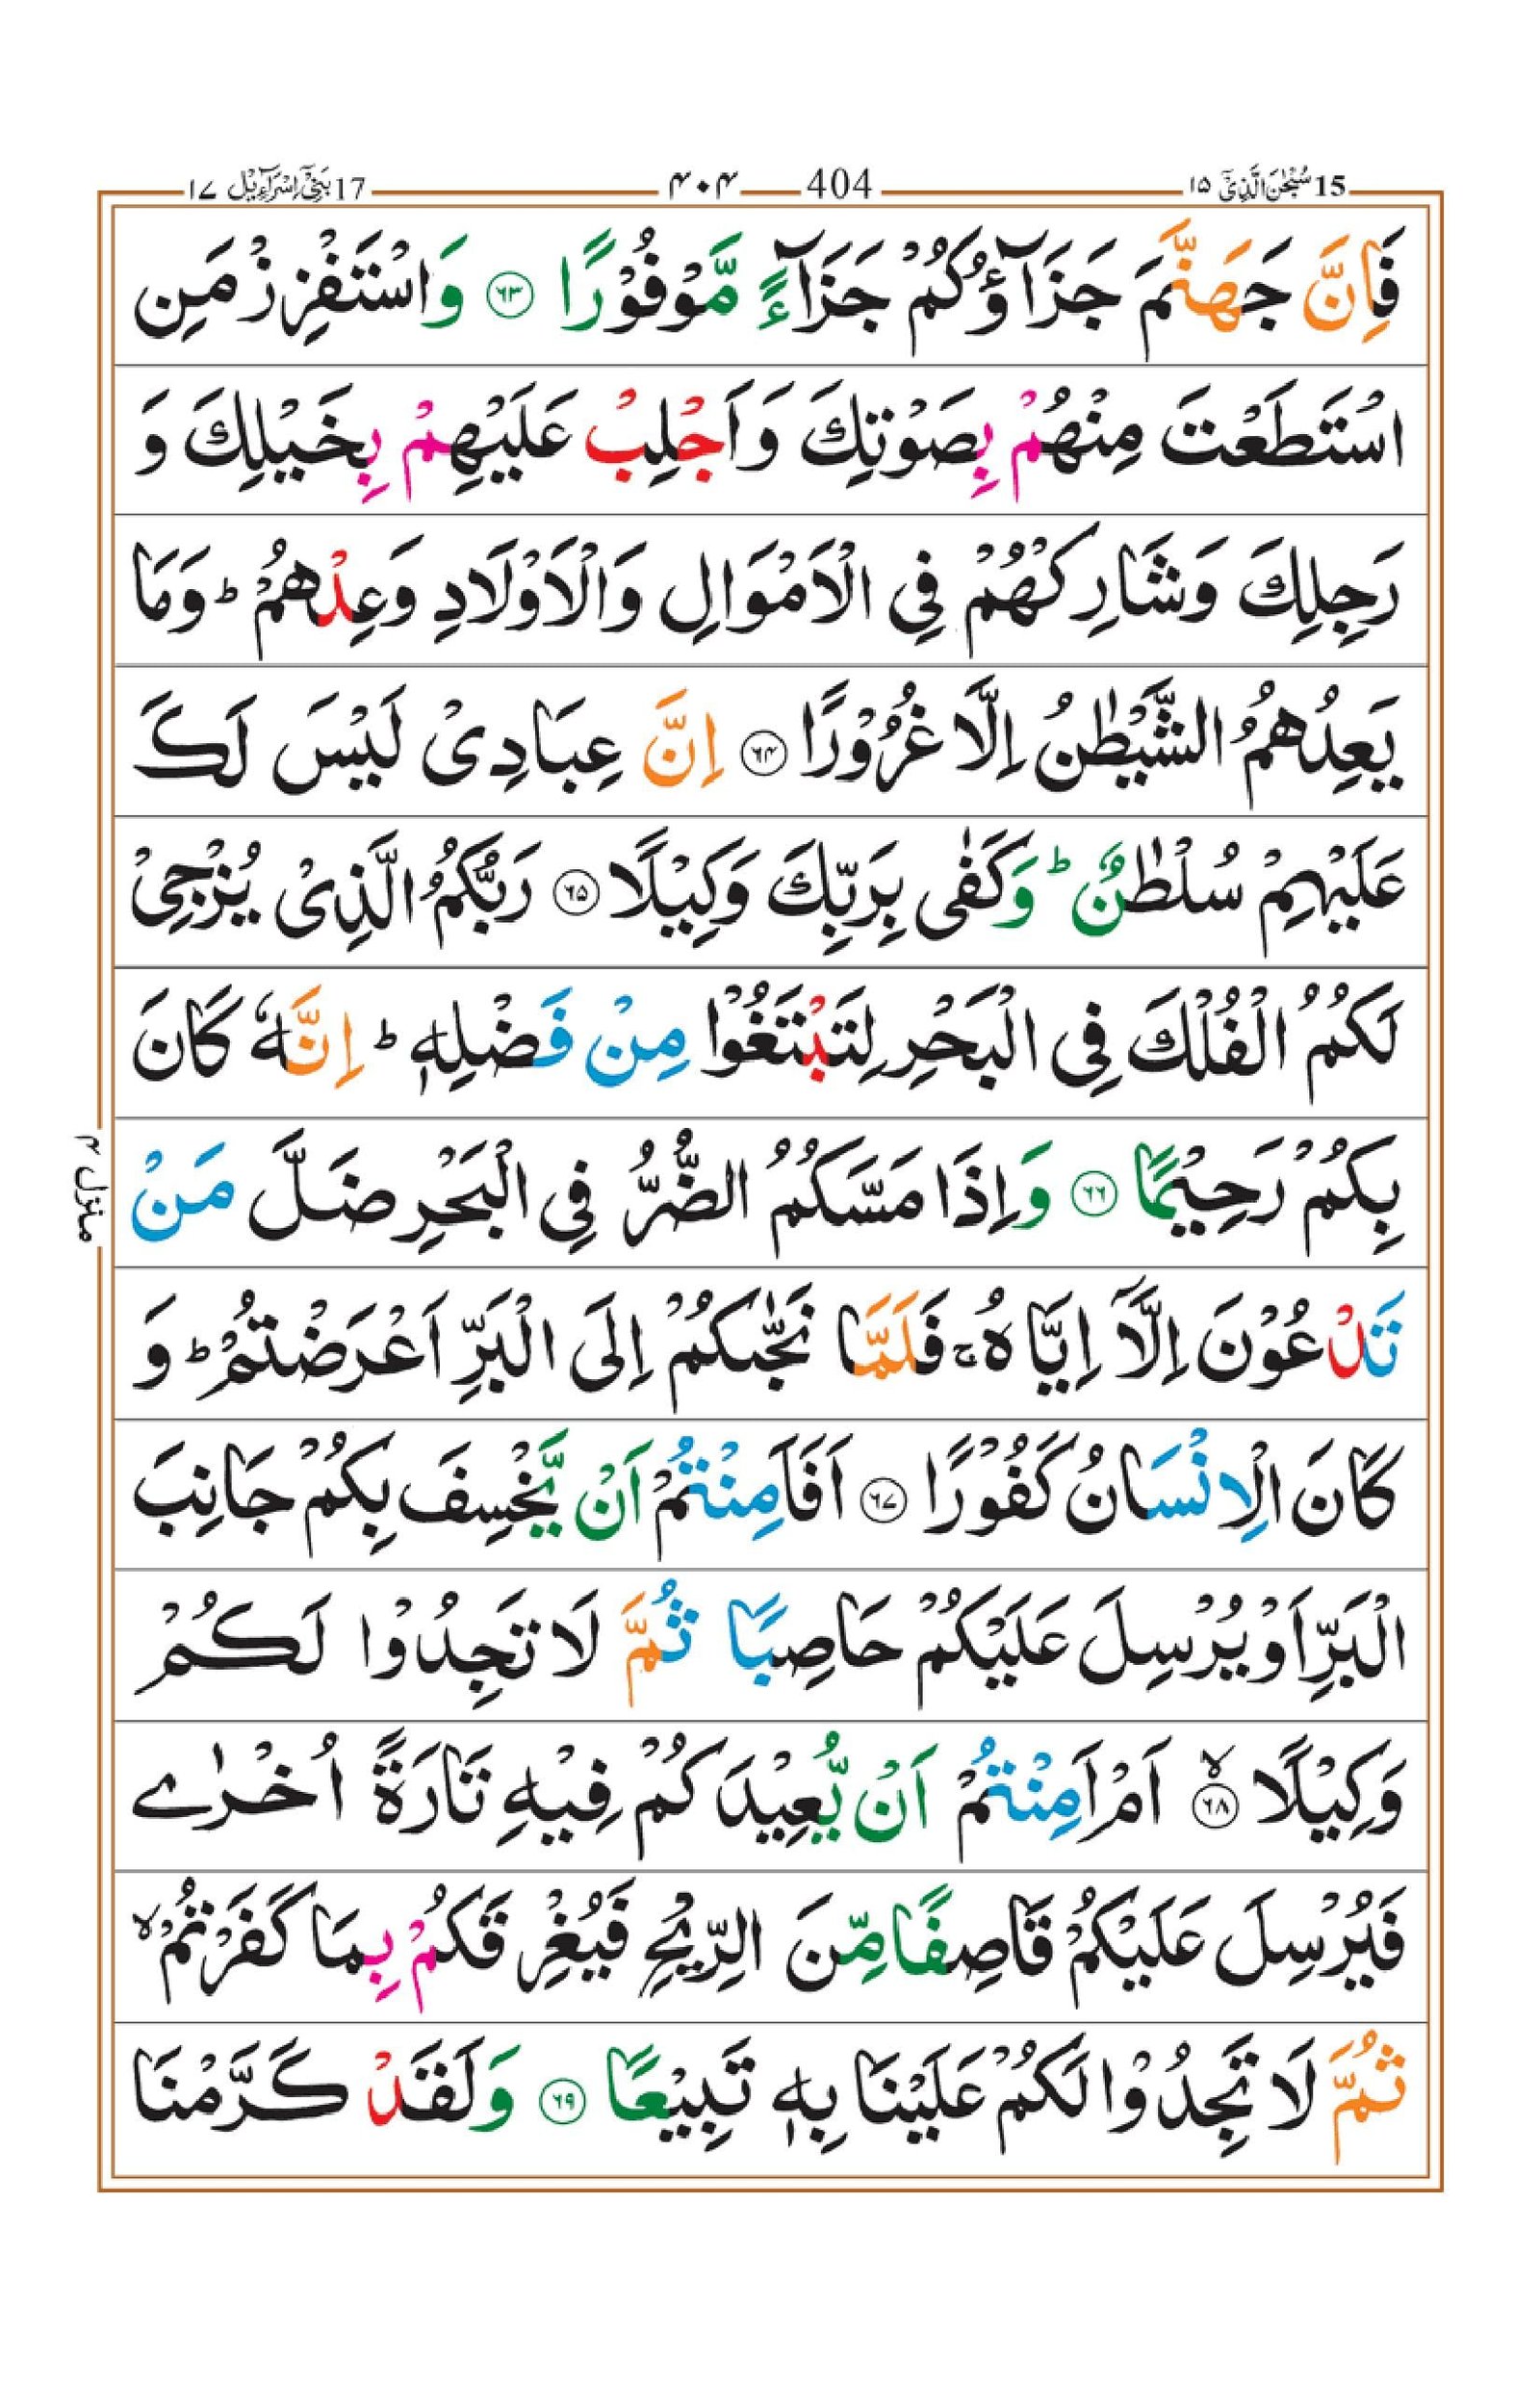 15 سُبْحٰنَ الَّذِیْۤ ۱۵ 404 ۴۰۴ 17 بَنِیْۤ اِسْرَآءِیْل ۱۷
فَاِنَّ جَهَنَّمَ جَزَآؤُكُمْ جَزَآءً مَّوْفُوْرًا ۶۳ وَاسْتَفْزِزْ مَنِ
اسْتَطَعْتَ مِنْهُمْ بِصَوْتِكَ وَاَجْلِبْ عَلَیْهِمْ بِخَیْلِكَ وَ
رَجِلِكَ وَشَارِكْهُمْ فِی الْاَمْوَالِ وَالْاَوْلَادِ وَعِدْهُمْ ؕ وَمَا
یَعِدُهُمُ الشَّیْطٰنُ اِلَّا غُرُوْرًا ۶۴ اِنَّ عِبَادِیْ لَیْسَ لَكَ
عَلَیْهِمْ سُلْطٰنٌ ؕ وَكَفٰی بِرَبِّكَ وَكِیْلًا ۶۵ رَبُّكُمُ الَّذِیْ یُزْجِیْ
لَكُمُ الْفُلْكَ فِی الْبَحْرِ لِتَبْتَغُوْا مِنْ فَضْلِهٖ ؕ اِنَّهٗ كَانَ
بِكُمْ رَحِیْمًا ۶۶ وَاِذَا مَسَّكُمُ الضُّرُّ فِی الْبَحْرِ ضَلَّ مَنْ
تَدْعُوْنَ اِلَّاۤ اِیَّاهُ ۚ فَلَمَّا نَجّٰىكُمْ اِلَی الْبَرِّ اَعْرَضْتُمْ ؕ وَ
كَانَ الْاِنْسَانُ كَفُوْرًا ۶۷ اَفَاَمِنْتُمْ اَنْ یَّخْسِفَ بِكُمْ جَانِبَ
الْبَرِّ اَوْ یُرْسِلَ عَلَیْكُمْ حَاصِبًا ثُمَّ لَا تَجِدُوْا لَكُمْ
وَكِیْلًا ۙ ۶۸ اَمْ اَمِنْتُمْ اَنْ یُّعِیْدَكُمْ فِیْهِ تَارَةً اُخْرٰے
فَیُرْسِلَ عَلَیْكُمْ قَاصِفًا مِّنَ الرِّیْحِ فَیُغْرِقَكُمْ بِمَا كَفَرْتُمْ ۙ
ثُمَّ لَا تَجِدُوْا لَكُمْ عَلَیْنَا بِهٖ تَبِیْعًا ۶۹ وَلَقَدْ كَرَّمْنَا
منزل ۴